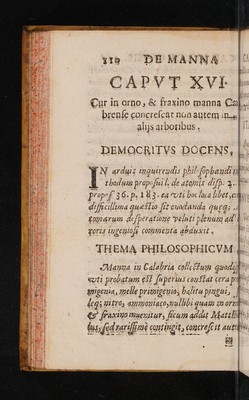 110 DE MANNA
CAPVT XVI.
Cur in orno, & fraxino manna Ca
brense concrescat non autem in
alijs arboribus.
DEMOCRITVS DOCENS,
IN arduis inquirendis philosophandi
thodum proposui l. de atomis disp. 2.
propos 36. p. 183. ea uti hoc loco libet,
difficillima quæstio sit euadanda quæq;
tomarum desperatione veluti plenum ad
roris ingeniosi commenta abduxit.
THEMA PHILOSOPHICVM
Manna in Calabria collectum quod
vti probatum est superius constat cera
migenia, melle primigenio, halitu pingui,
leq; nitro, ammoniaco, nullibi quam in orn
& fraxino inuenitur, sicum addit Matth
lus, sed rarissimè contingit, concrescit aut